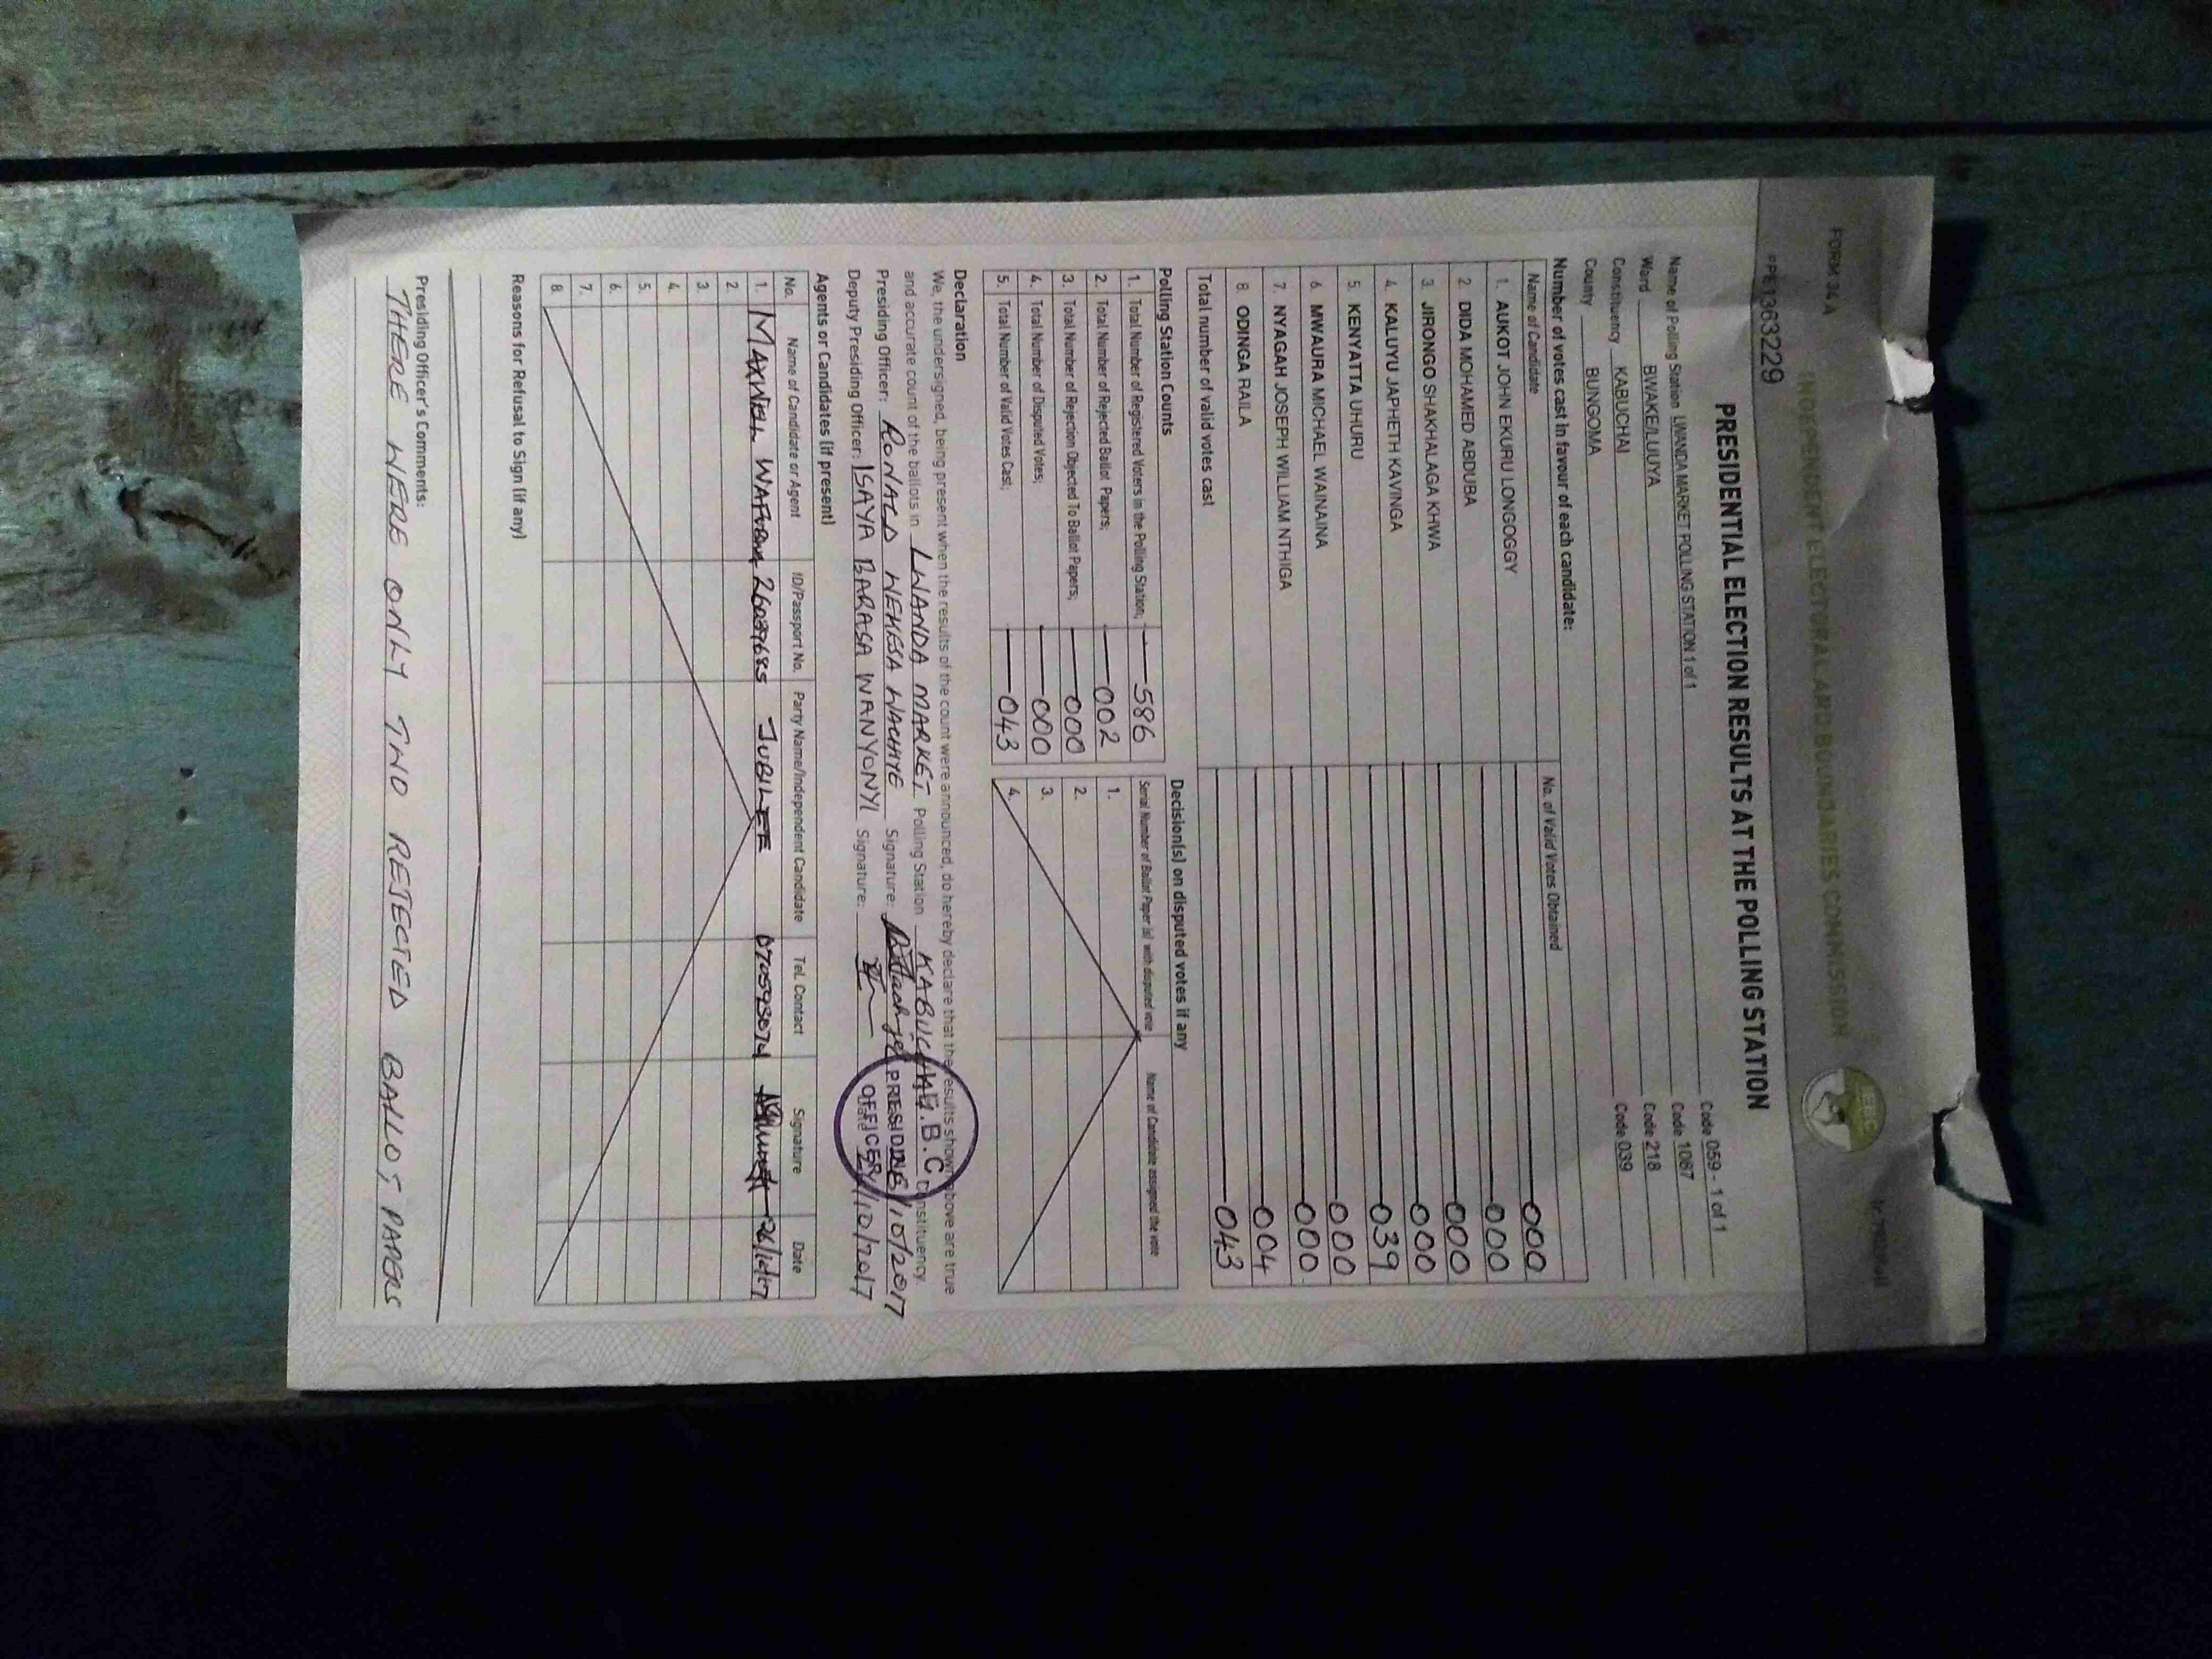 FORM 34A
INDEPENDENT ELECTORAL AND BOUNDARIES COMMISSION
IEBC
PRESIDENTIAL ELECTION RESULTS AT THE POLLING STATION
Name of Polling Station LWANDA MARKET POLLING STATION 1 of 1 Code 059 - 1 of 1
Ward BWAKE/LUUYA Code 1087
Constituency KABUCHAI Code 218
County BUNGOMA Code 039
Number of votes cast in favour of each candidate:
Name of Candidate No. of Valid Votes Obtained
1. AUKOT JOHN EKURU LONGOGGY 000
2. DIDA MOHAMED ABDUBA 000
3. JIRONGO SHAKHALAGA KHWA 000
4. KALUYU JAPHETH KAVINGA 000
5. KENYATTA UHURU 039
6. MWAURA MICHAEL WAINAINA 000
7. NYAGAH JOSEPH WILLIAM NTHIGA 000
8. ODINGA RAILA 004
Total number of valid votes cast 043
Polling Station Counts
1. Total Number of Registered Voters in the Polling Station; 586
2. Total Number of Rejected Ballot Papers; 002
3. Total Number of Rejection Objected To Ballot Papers; 000
4. Total Number of Disputed Votes; 000
5. Total Number of Valid Votes Cast; 043
Decision(s) on disputed votes if any
Serial Number of Ballot Paper (s) with disputed vote Name of Candidate assigned the vote
1.
2.
3.
4.
Declaration
We, the undersigned, being present when the results of the count were announced, do hereby declare that the results shown above are true
and accurate count of the ballots in LWANDA MARKET Polling Station KABUCHAI Constituency.
Presiding Officer: RONALD WEKESA WACHIYE Signature: /10/2017
Deputy Presiding Officer: ISAYA BARASA WANYONYI Signature: /10/2017
I.E.B.C
PRESIDING
OFFICER
Agents or Candidates (if present)
No. Name of Candidate or Agent ID/Passport No. Party Name/Independent Candidate Tel. Contact Signature Date
1. MAXWELL 26037685 JUBILEE 070593074 26/10/17
2.
3.
4.
5.
6.
7.
8.
Reasons for Refusal to Sign (if any)
Presiding Officer's Comments:
THERE WERE ONLY TWO REJECTED BALLOT PAPERS